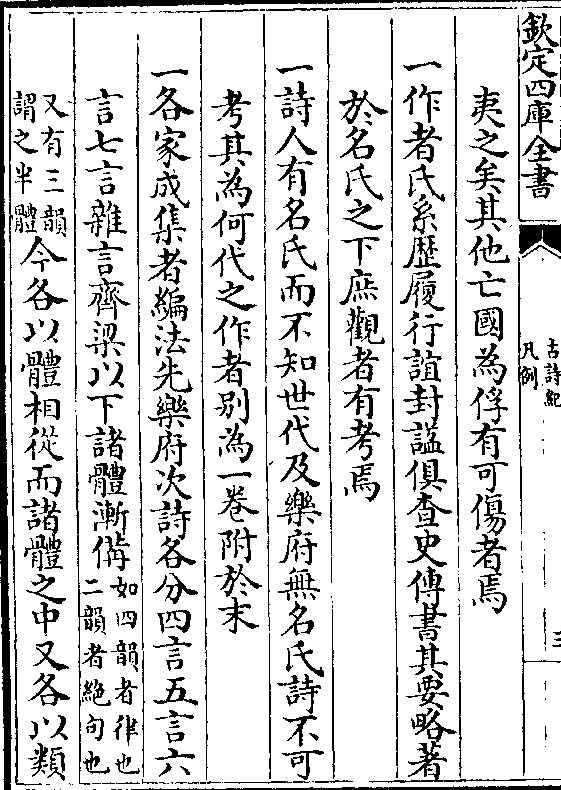 欽定四庫全書
古詩紀
凡例
三
夷之矣其他亡國為俘有可傷者焉
一作者氏系歷履行誼封諡俱查史傳書其要略著
於名氏之下庶觀者有考焉
一詩人有名氏而不知世代及樂府無名氏詩不可
考其為何代之作者別為一卷附於末
一各家成集者編法先樂府次詩各分四言五言六
言七言雜言齊梁以下諸體漸備如四韻者律也
二韻者絶句也
又有三韻
謂之半體今各以體相從而諸體之中又各以類